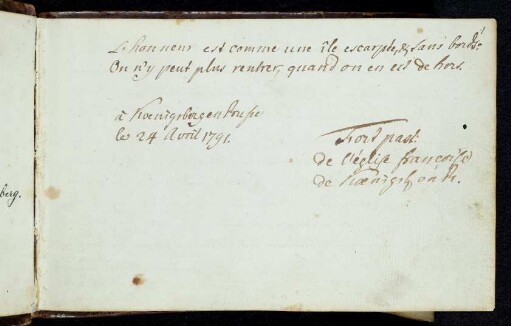 L'honneur est comme une île escarpée, & sans bords:
On n'y peut plus rentrer, quand on en est dehors.
à Koenigsberg en Prusse
le 24 Avril 1791.
past.
de l'église françoise
de
berg.